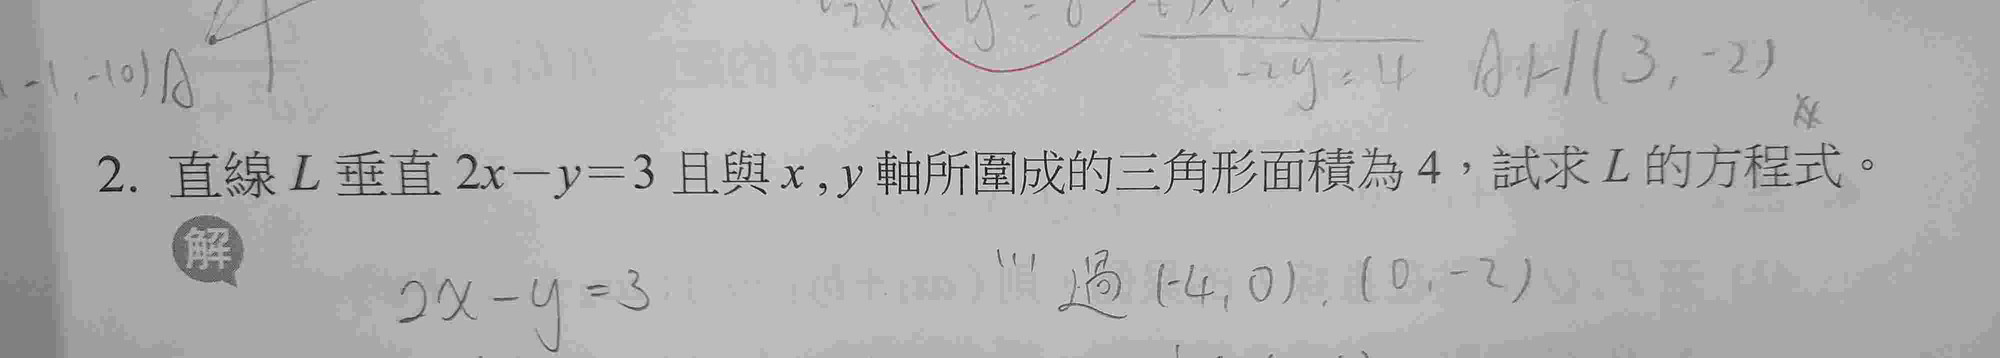 -2y=4
(-1,-10)A
A:H(3,-2)
2. 直線 L 垂直 2x－y＝3 且與 x , y 軸所圍成的三角形面積為 4，試求 L 的方程式。
解
2x-y=3
過(-4,0).(0,-2)